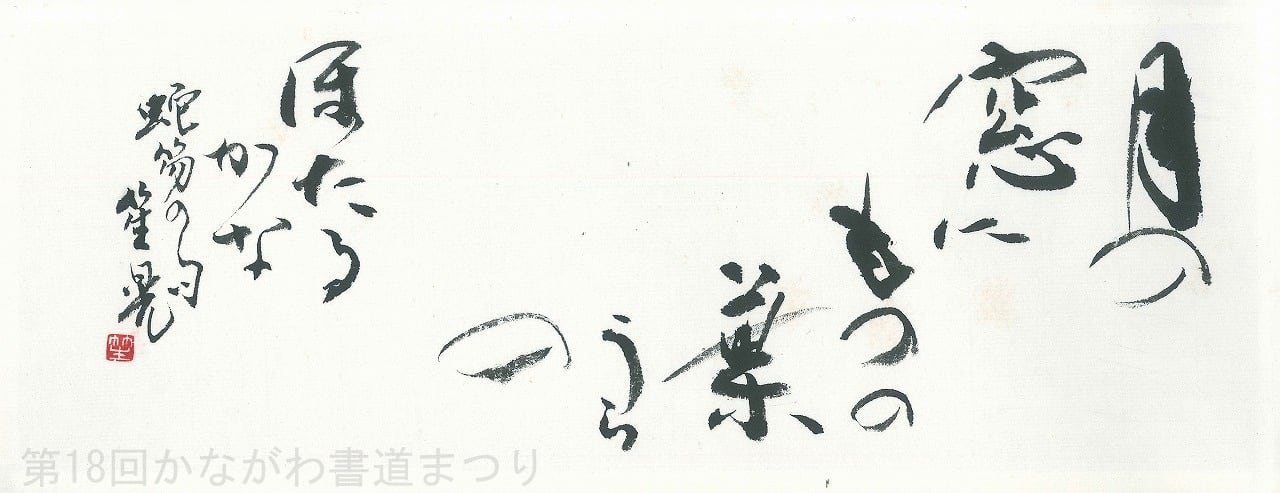 月の
窓に
ものの
葉
うら
の
ほたる
かな
蛇笏の句
笙晃
笙
第18回かながわ書道まつり